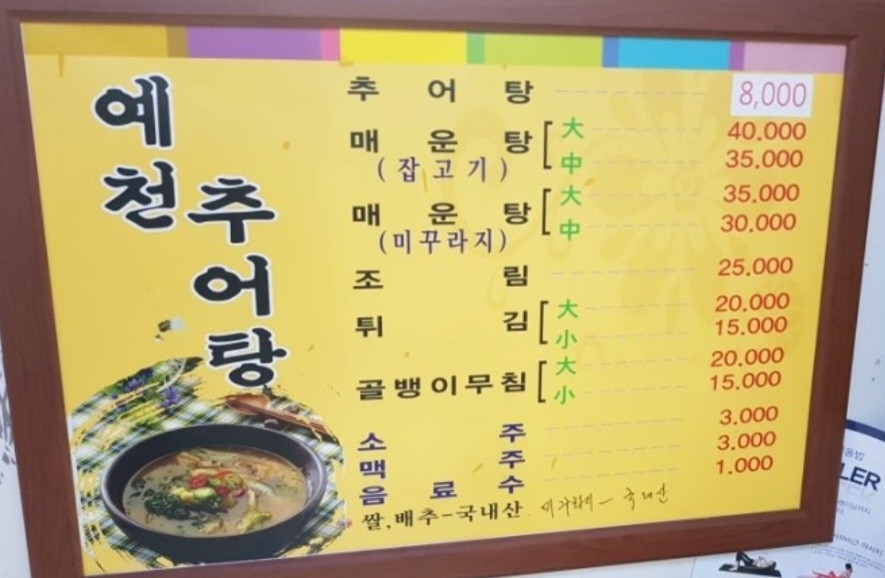 예천
추어탕
추어탕 8,000
매운탕 大 40.000
(잡고기) 中 35.000
매운탕 大 35.000
(미꾸라지) 中 30.000
조림 25.000
튀김 大 20.000
小 15.000
골뱅이무침 大 20.000
小 15.000
소주 3.000
맥주 3.000
음료수 1.000
쌀,배추-국내산 미꾸라지 - 국내산
LER